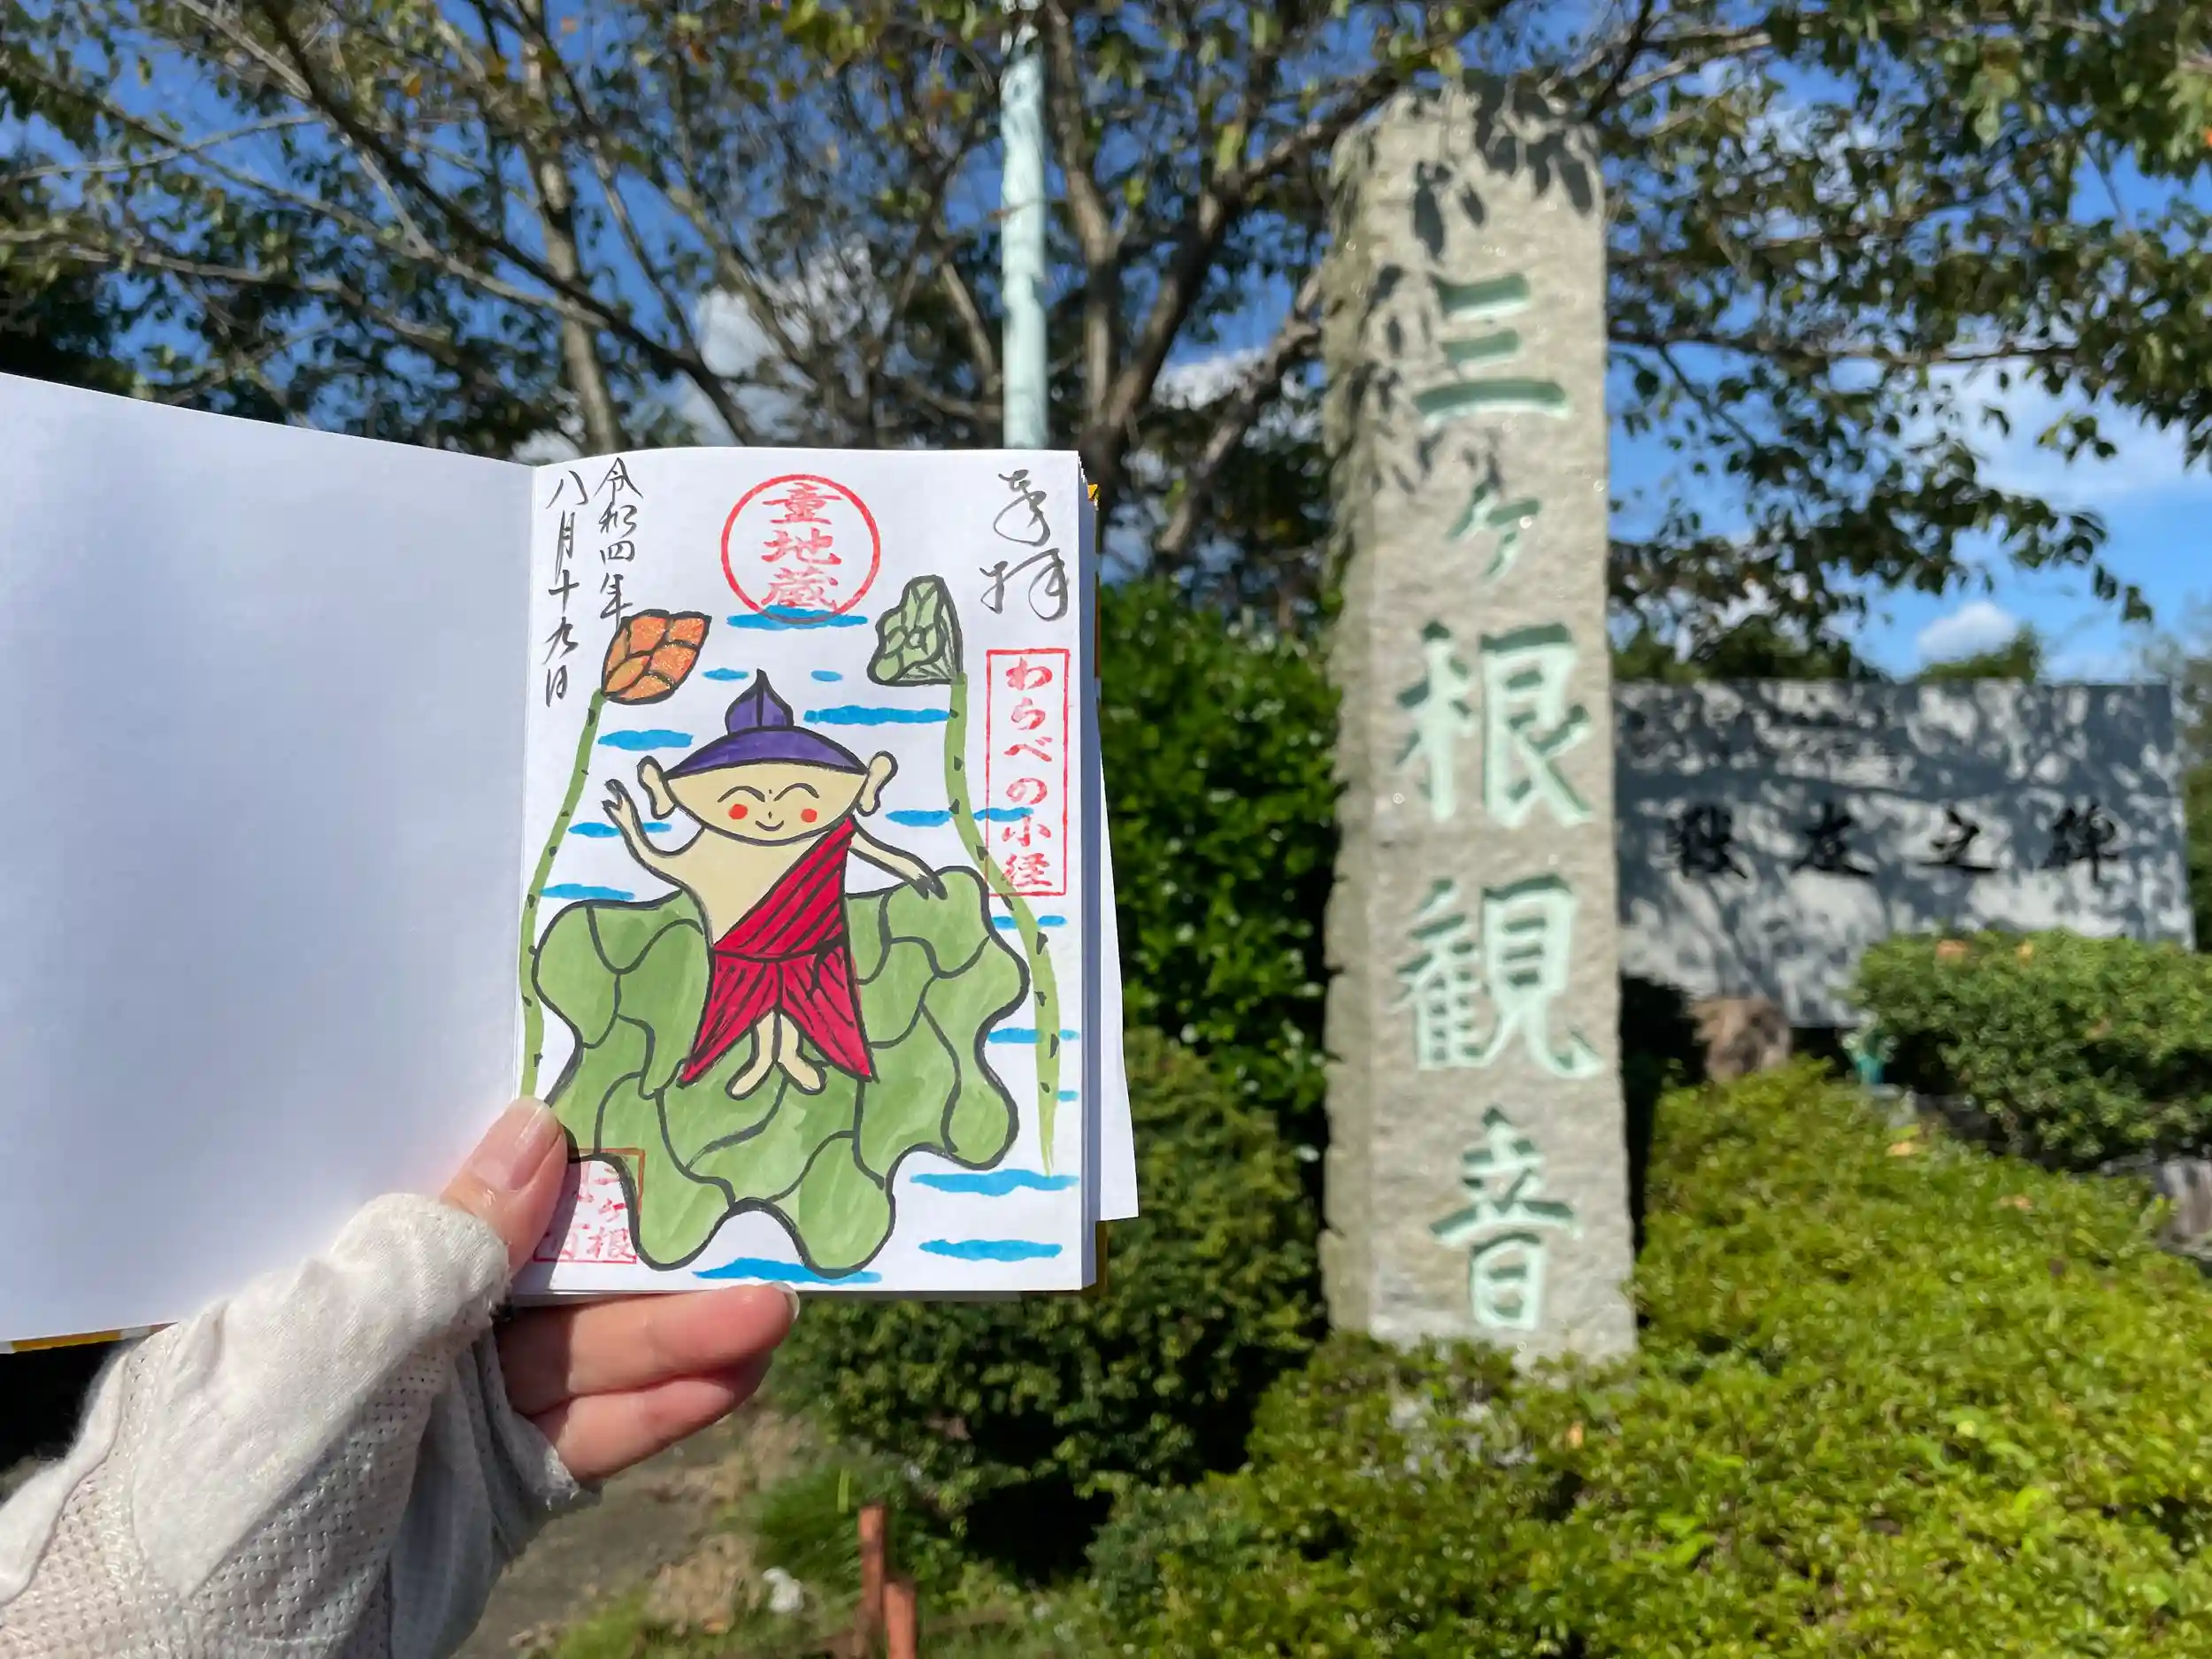 奉拝
わらべの小径
童地蔵
令和四年
八月十九日
三ヶ根
三ヶ根観音
戦友之碑